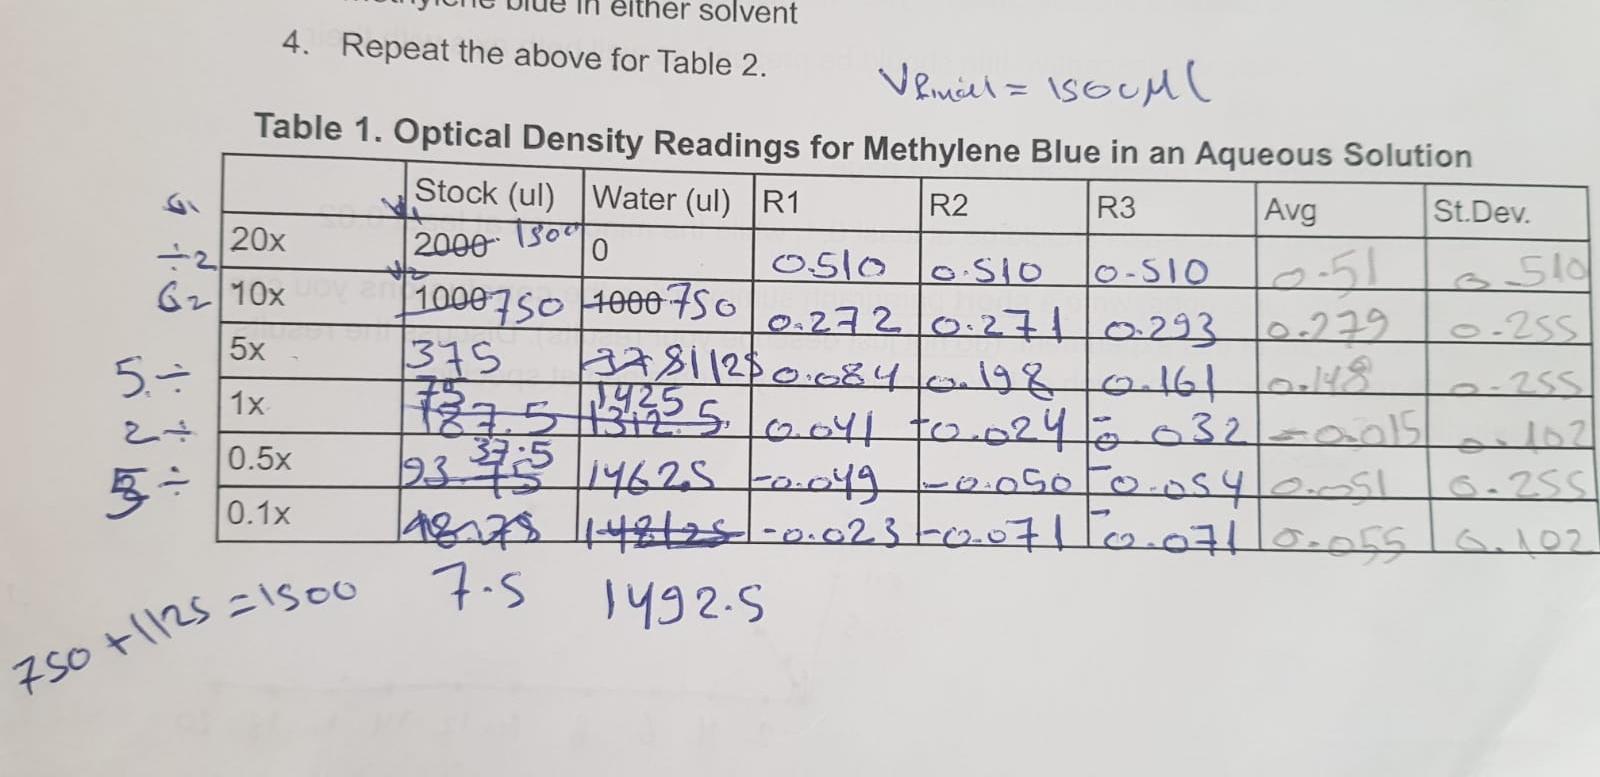 methylene blue in either solvent
4. Repeat the above for Table 2.
Vfinal = 1500μl
Table 1. Optical Density Readings for Methylene Blue in an Aqueous Solution
Stock (ul) Water (ul) R1 R2 R3 Avg St.Dev.
C1 V1
20x 2000 1500 0 0.510 0.510 0.510 0.51 0.510
÷2 V2
C2 10x 1000 750 1000 750 0.272 0.271 0.293 0.279 0.255
5x 375 1125 0.084 0.198 0.161 0.148 0.255
5 ÷
1x 75 187.5 1425 1312.5 0.041 0.024 0.032 -0.015 0.102
2 ÷
0.5x 93.75 37.5 1462.5 -0.049 -0.050 -0.054 0.051 0.255
5 ÷
0.1x 48.75 -0.023 -0.071 -0.071 0.055 0.102
7.5 1492.5
750 + 1125 = 1500